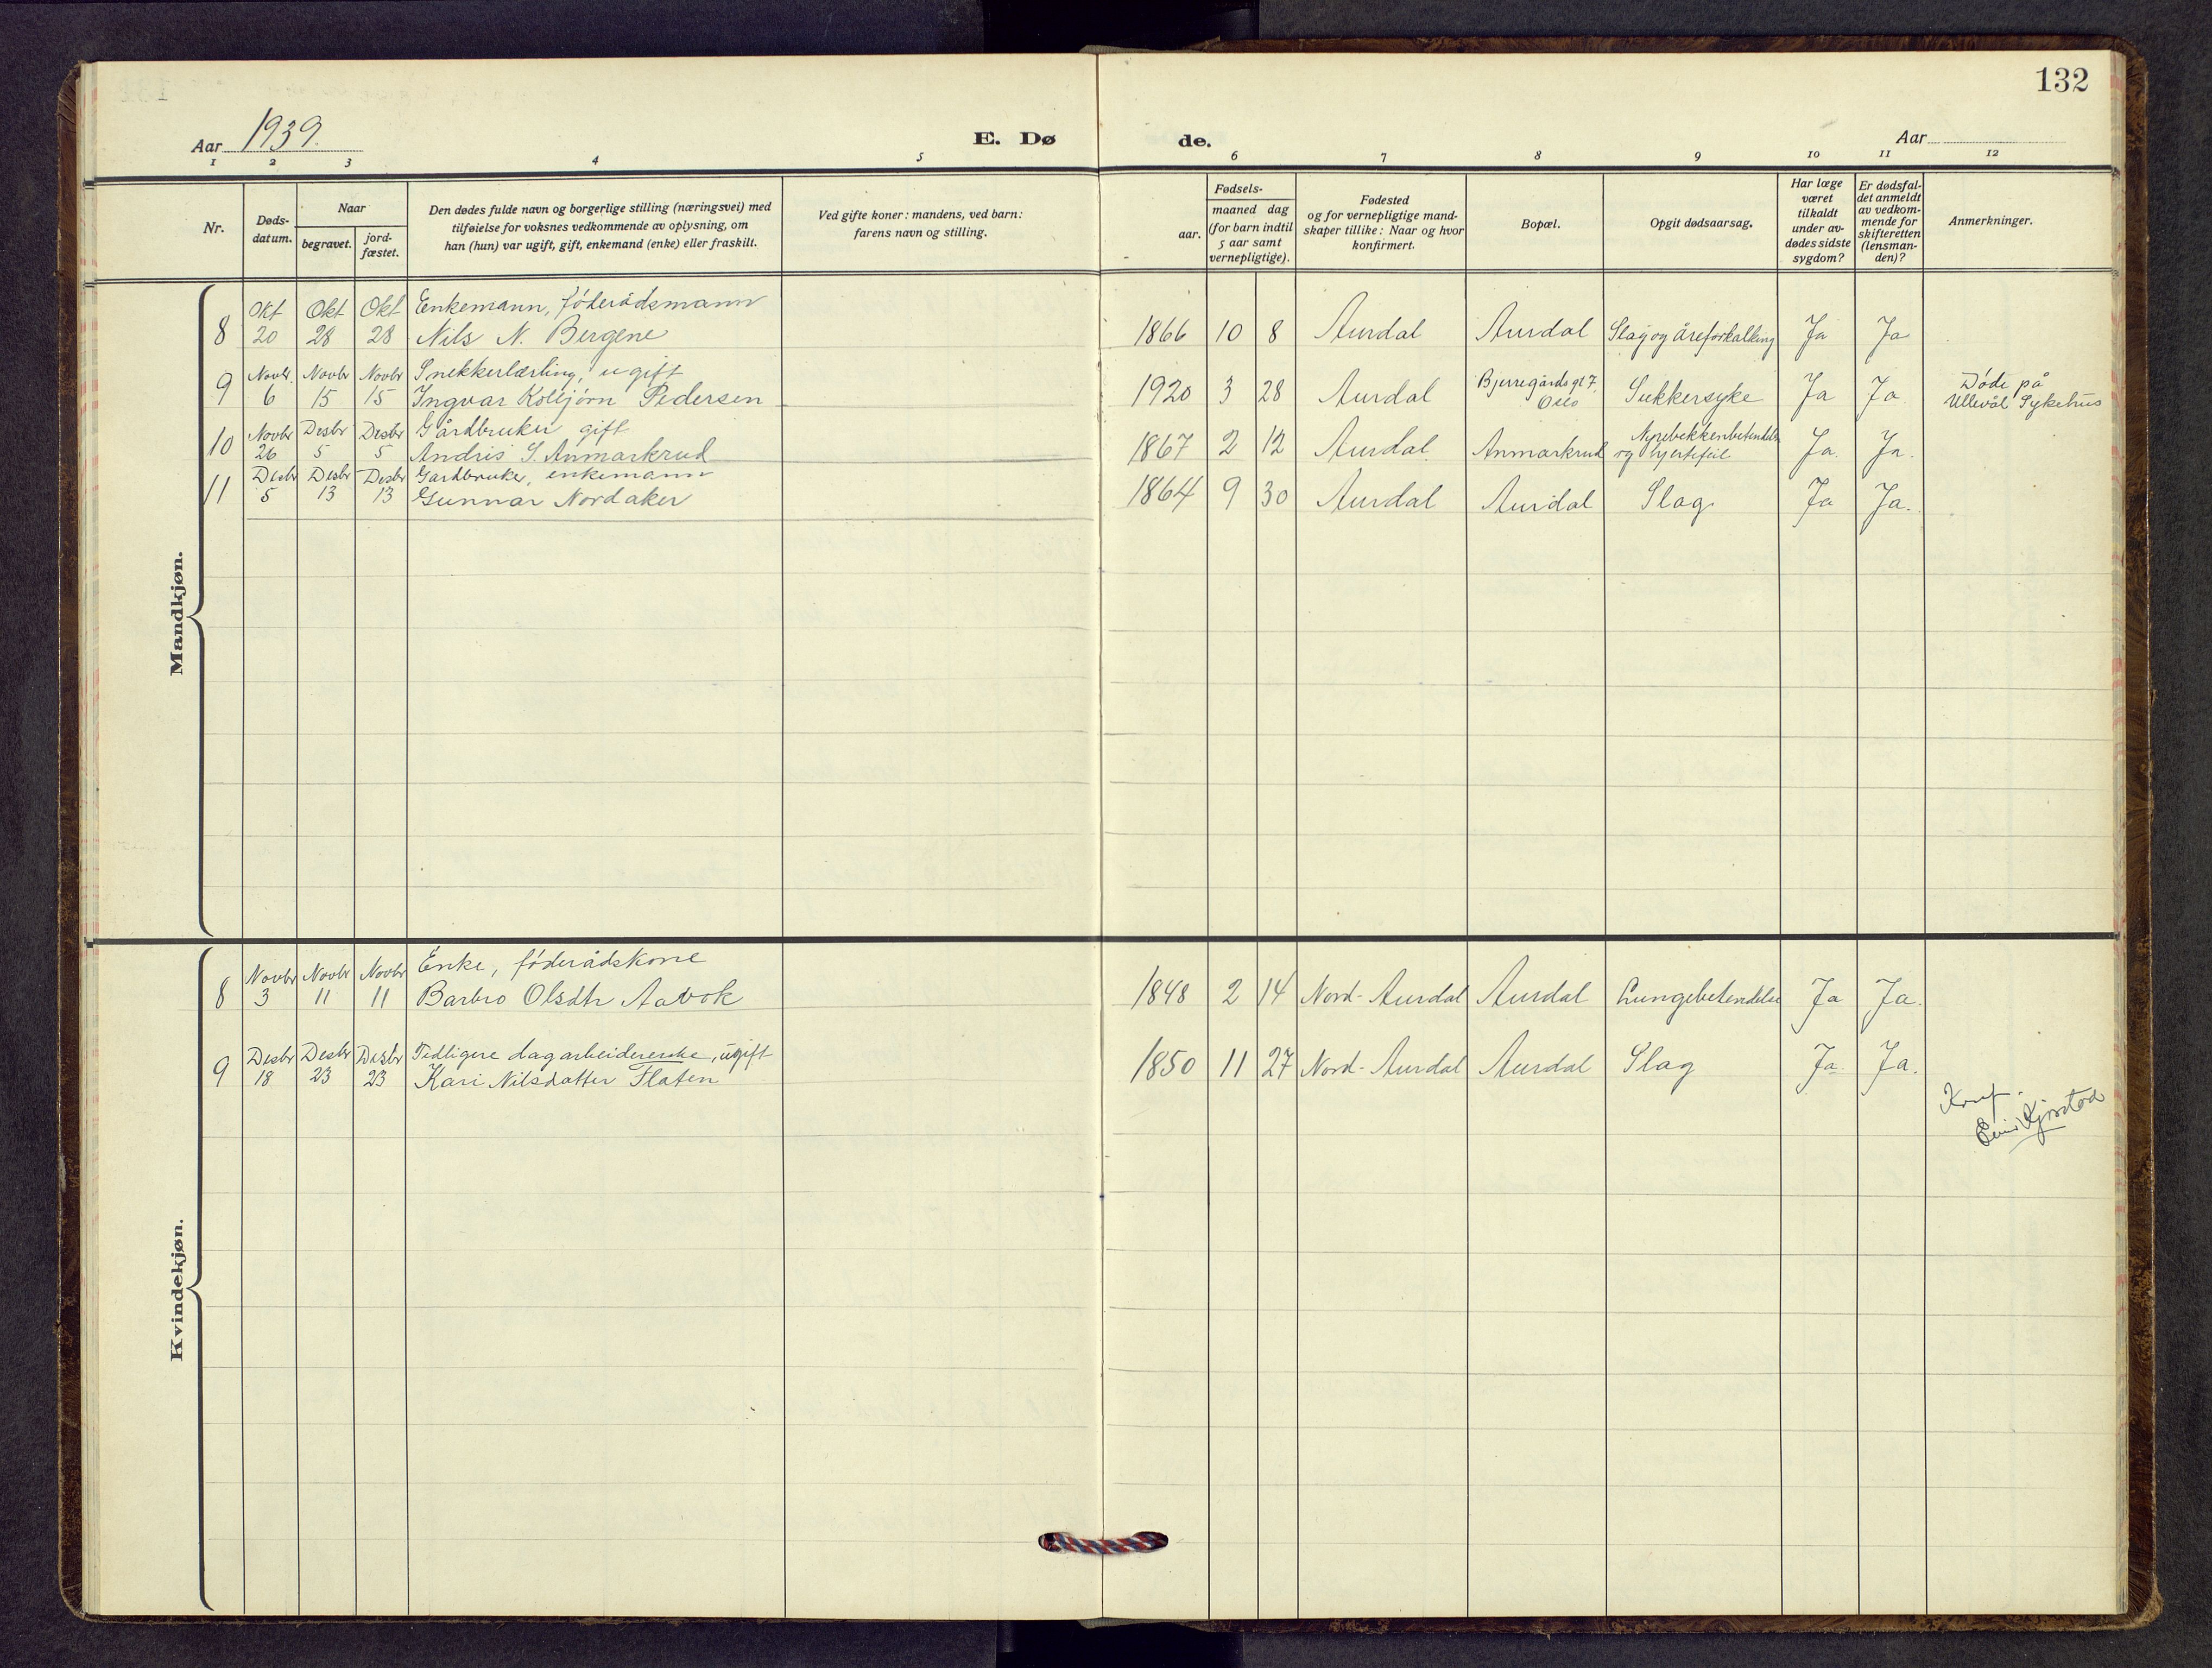 132
Aar 1939.
E. Dø de.
Aar
1 2 3 4 5 6 7 8 9 10 11 12
Nr.
Døds-
datum.
Naar
begravet.
jord-
fæstet.
Den dødes fulde navn og borgerlige stilling (næringsvei) med
tilføielse for voksnes vedkommende av oplysning, om
han (hun) var ugift, gift, enkemand (enke) eller fraskilt.
Ved gifte koner: mandens, ved barn:
farens navn og stilling.
Fødsels-
aar.
maaned dag
(for barn indtil
5 aar samt
vernepligtige).
Fødested
og for vernepligtige mand-
skaper tillike: Naar og hvor
konfirmert.
Bopæl.
Opgit dødsaarsag.
Har læge
været
tilkaldt
under av-
dødes sidste
sygdom?
Er dødsfal-
det anmeldt
av vedkom-
mende for
skifteretten
(lensman-
den)?
Anmerkninger.
Mandkjøn.
Okt Okt Okt Enkemann, føderådsmann
8 20 28 28 Nils N. Bergene 1866 10 8 Aurdal Aurdal Slag og åreforkalkning Ja Ja
Novbr. Novbr Novbr Snekkerlærling, ugift Bjerregårds gt 7. Døde på
9 6 15 15 Ingvar Kolbjørn Pedersen 1920 3 28 Aurdal Oslo Sukkersyke Ja Ja Ullevål Sykehus
Novbr Desbr Desbr Gårdbruker gift Nyrebekkenbetendelse
10 26 5 5 Andris S. Anmarkrud 1867 2 12 Aurdal. Anmarkrud og hjertefeil Ja. Ja.
Desbr Desbr Desbr Gardbruker, enkemann
11 5 13 13 Gunnar Nordaker 1864 9 30 Aurdal Aurdal Slag Ja Ja.
Kvindekjøn.
Novbr Novbr Novbr Enke, føderådskone
8 3 11 11 Barbro Olsdtr Aabok 1848 2 14 Nord-Aurdal Aurdal Lungebetendelse Ja Ja.
Desbr Desbr Desbr Tidligere dagarbeidererske, ugift
9 18 23 23 Kari Nilsdatter Flaten 1850 11 27 Nord-Aurdal Aurdal Slag Ja. Ja.
Konf.